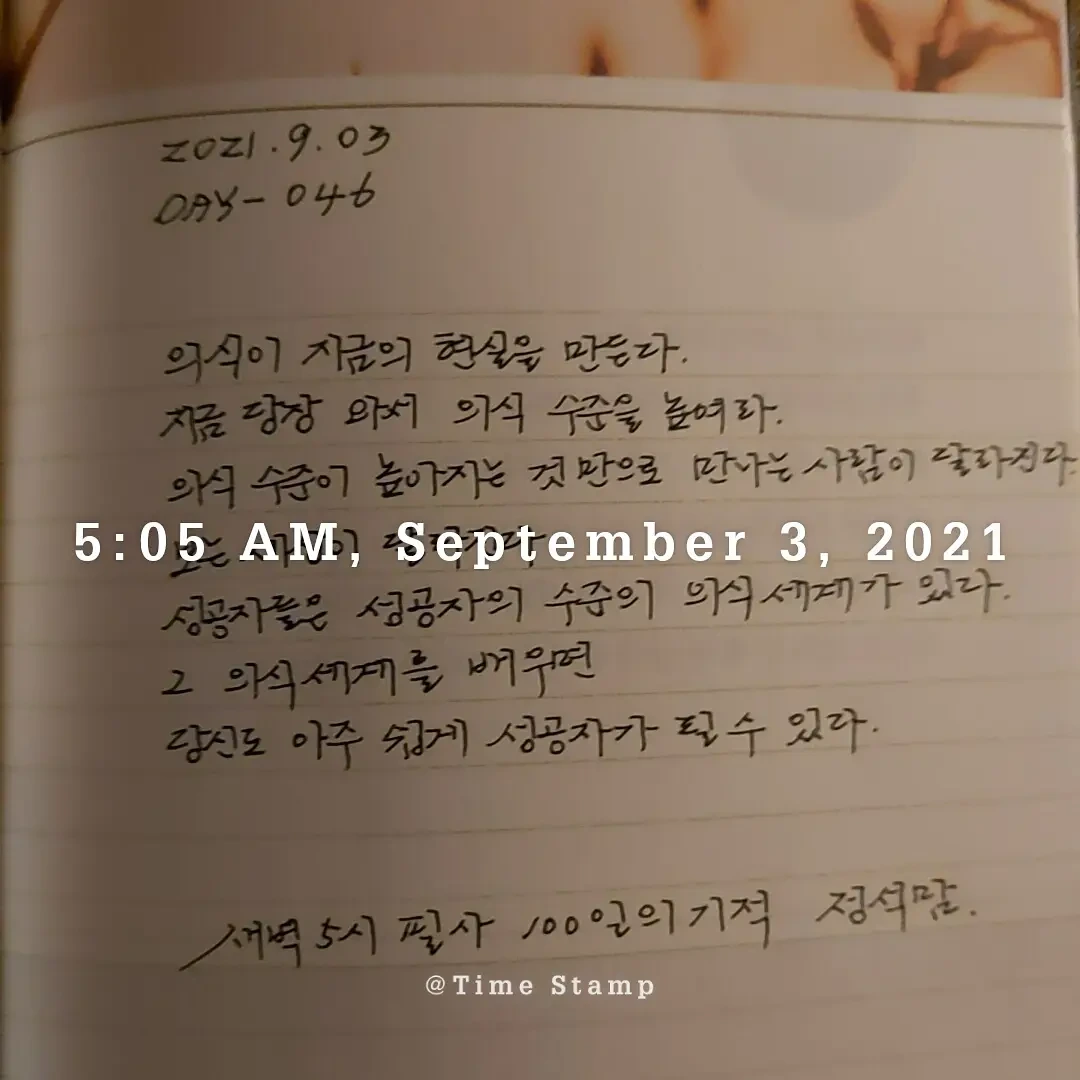 2021.9.03
DAY-046
의식이 지금의 현실을 만든다.
지금 당장 와서 의식 수준을 높여라.
의식 수준이 높아지는 것만으로 만나는 사람이 달라진다.
5:05 AM, September 3, 2021
성공자들은 성공자의 수준의 의식세계가 있다.
그 의식세계를 배우면
당신도 아주 쉽게 성공자가 될 수 있다.
새벽 5시 필사 100일의 기적 정석맘.
@Time Stamp